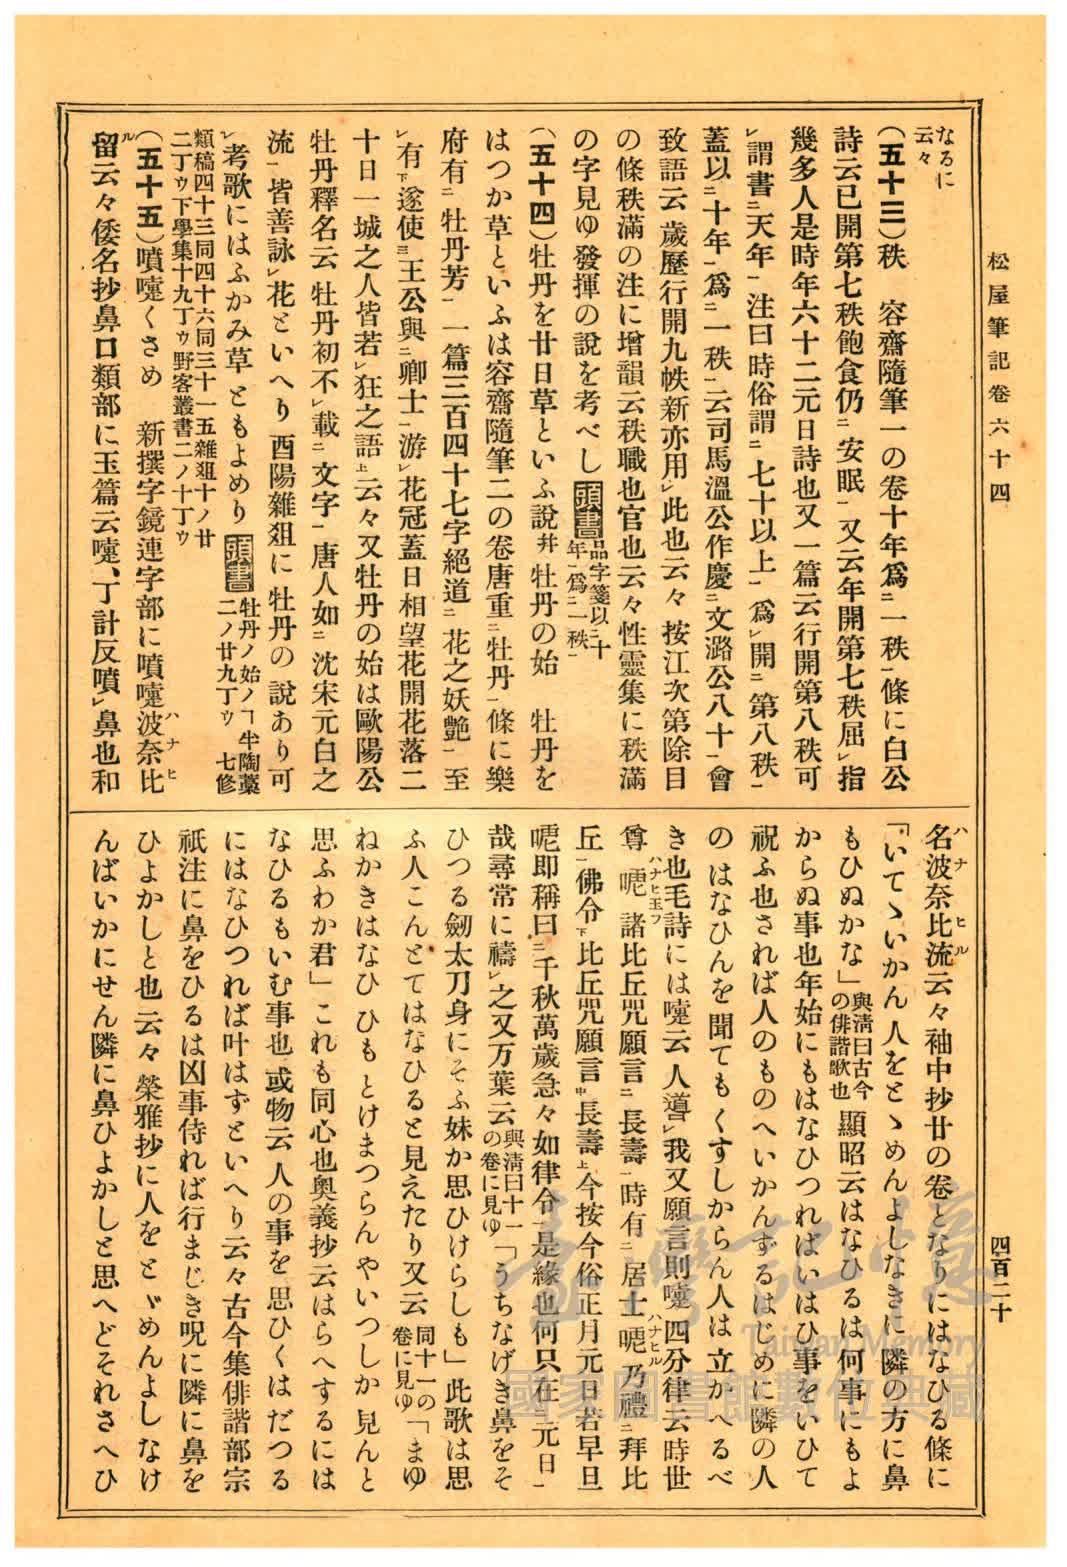 松屋筆記卷六十四
四百二十
なるに
云々
(五十三)秩 容齋隨筆一の卷十年爲㆓一秩㆒條に白公
詩云已開第七秩飽食仍㆓安眠㆒又云年開第七秩屈㆑指
幾多人是時年六十二元日詩也又一篇云行開第八秩可
㆑謂書㆓天年㆒注曰時俗謂㆓七十以上㆒爲㆑開㆓第八秩㆒
蓋以㆓十年㆒爲㆓一秩㆒云司馬溫公作慶㆓文潞公八十㆒會
致語云歲歷行開九帙新亦用㆑此也云々按江次第除目
の條秩滿の注に增韻云秩職也官也云々性靈集に秩滿
の字見ゆ發揮の說を考べし頭書品字箋以㆓十
年㆒爲㆓一秩㆒
(五十四)牡丹を廿日草といふ說幷牡丹の始 牡丹を
はつか草といふは容齋隨筆二の卷唐重㆓牡丹㆒條に樂
府有㆓牡丹芳㆒一篇三百四十七字絕道㆓花之妖艷㆒至
㆑有㆘遂使㆔王公與㆓卿士㆒游㆑花冠蓋日相望花開花落二
十日一城之人皆若㆑狂之語㆖云々又牡丹の始は歐陽公
牡丹釋名云牡丹初不㆑載㆓文字㆒唐人如㆓沈宋元白之
流㆒皆善詠㆑花といへり酉陽雜爼に牡丹の說あり可
㆑考歌にはふかみ草ともよめり頭書牡丹ノ始ノヿ半陶藁
二ノ廿九丁ウ 七修
類稿四十三同四十六同三十一五雜爼十ノ廿
二丁ウ下學集十九丁ウ野客叢書二ノ十丁ウ
(五十五)噴嚏くさめ 新撰字鏡連字部に噴嚏波奈比
ハナヒ
留云々倭名抄鼻口類部に玉篇云嚏、丁計反噴㆑鼻也和
ル
名波奈比流云々袖中抄廿の卷となりにはなひる條に
ハナヒル
「いてゝいかん人をとゝめんよしなきに隣の方に鼻
もひぬかな」與淸曰古今
の俳諧歌也顯昭云はなひるは何事にもよ
からぬ事也年始にもはなひつればいはひ事をいひて
祝ふ也されば人のものへいかんずるはじめに隣の人
のはなひんを聞てもくすしからん人は立かへるべ
き也毛詩には嚏云人道㆑我又願言則嚏四分律云時世
尊㗭諸比丘咒願言㆓長壽㆒時有㆓居士㗭乃禮㆓拜比
ハナヒ玉フ ハナヒル
丘㆒佛令㆘比丘咒願言㆗長壽㆖今按今俗正月元日若早旦
㗭即稱曰㆓千秋萬歲急々如律令㆒是緣也何只在㆓元日㆒
哉尋常に禱㆑之又万葉云與淸曰十一
の卷に見ゆ「うちなげき鼻をそ
ひつる劒太刀身にそふ妹か思ひけらしも」此歌は思
ふ人こんとてはなひると見えたり又云同十一の
卷に見ゆ「まゆ
ねかきはなひひもとけまつらんやいつしか見んと
思ふわか君」これも同心也奧義抄云はらへするには
なひるもいむ事也或物云人の事を思ひくはだつる
にはなひつれば叶はずといへり云々古今集俳諧部宗
祇注に鼻をひるは凶事侍れば行まじき呪に隣に鼻を
ひよかしと也云々榮雅抄に人をとゞめんよしなけ
んばいかにせん隣に鼻ひよかしと思へどそれさへひ
臺灣記憶
Taiwan Memory
國家圖書館數位典藏